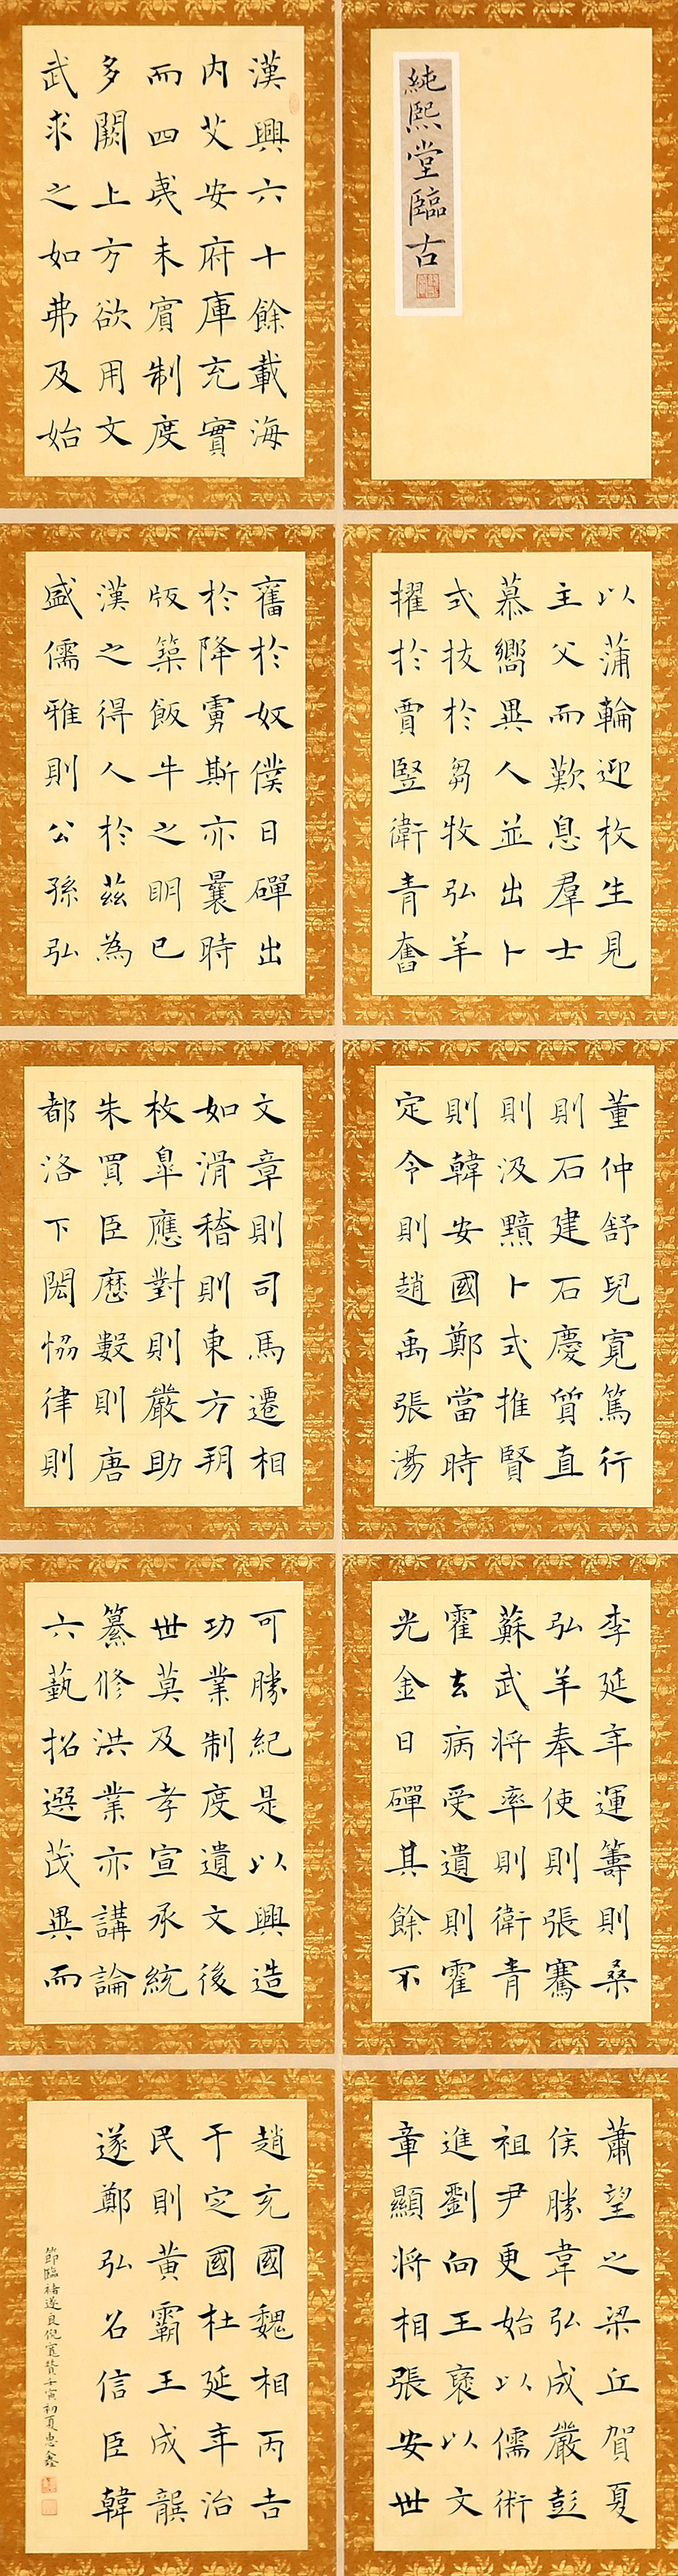 純熙堂臨古
漢興六十餘載海
内艾安府庫充實
而四夷未賓制度
多闕上方欲用文
武求之如弗及始
以蒲輪迎枚生見
主父而歎息羣士
慕嚮異人並出卜
式拔於芻牧弘羊
擢於賈豎衛青奮
奮於奴僕日磾出
於降虜斯亦曩時
版築飯牛之朙已
漢之得人於茲為
盛儒雅則公孫弘
董仲舒兒寬篤行
則石建石慶質直
則汲黯卜式推賢
則韓安國鄭當時
定令則趙禹張湯
文章則司馬遷相
如滑稽則東方朔
枚皐應對則嚴助
朱買臣歷數則唐
都洛下閎恊律則
李延年運籌則桑
弘羊奉使則張騫
蘇武將率則衛青
霍去病受遺則霍
光金日磾其餘不
可勝紀是以興造
功業制度遺文後
世莫及孝宣承統
纂修洪業亦講論
六藝招選茂異而
蕭望之梁丘賀夏
侯勝韋弘成嚴彭
祖尹更始以儒術
進劉向王襃以文
章顯將相張安世
趙充國魏相丙吉
于定國杜延年治
民則黃霸王成龔
遂鄭弘召信臣韓
節臨褚遂良倪寬贊壬寅初夏惠鑫